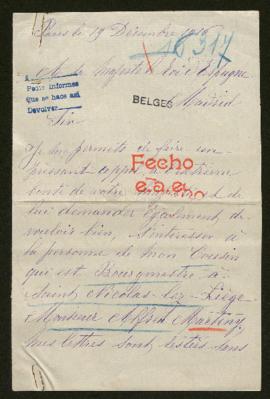 Paris le 19 Décembre 1916
16317
A Sa Majesté le Roi d'Espagne
A
Pedir informes
que se hace así
Devolver
BELGES
Madrid
Sire
Je me permets de faire un
puissant appel à l'extrême
Fecho
bonté de votre et de
lui demander également de
vouloir bien, s'intéresser à
la personne de mon Cousin
qui est Bourgmestre à
Saint Nicolas-lez-Liège
Monsieur Alfred Martiny
mes lettres sont restées sans